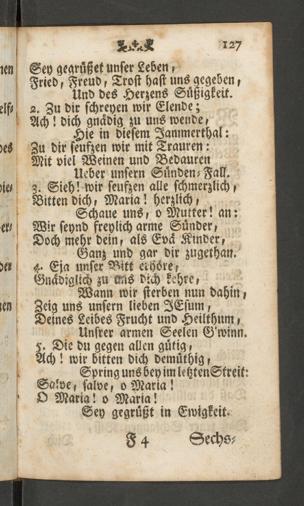 127
Sey gegrüßet unser Leben,
Fried, Freud, Trost hast uns gegeben,
Und des Herzens Süßigkeit.
2. Zu dir schreyen wir Elende;
Ach! dich gnädig zu uns wende,
Hie in diesem Jammerthal:
Zu dir seufzen wir mit Trauren:
Mit viel Weinen und Bedauren
Ueber unsern Sünden-Fall.
3. Sieh! wir seufzen alle schmerzlich,
Bitten dich, Maria! herzlich,
Schaue uns, o Mutter! an:
Wir seynd freylich arme Sünder,
Doch mehr dein, als Evä Kinder,
Ganz und gar dir zugethan.
4. Eja unser Bitt erhöre,
Gnädiglich zu uns dich kehre,
Wann wir sterben nun dahin,
Zeig uns unsern lieben JEsum,
Deines Leibes Frucht und Heilthum,
Unsrer armen Seelen G'winn.
5. Die du gegen allen gütig,
Ach! wir bitten dich demüthig,
Spring uns bey im letzten Streit:
Salve, salve, o Maria!
O Maria! o Maria!
Sey gegrüßt in Ewigkeit.
F 4 Sechs-